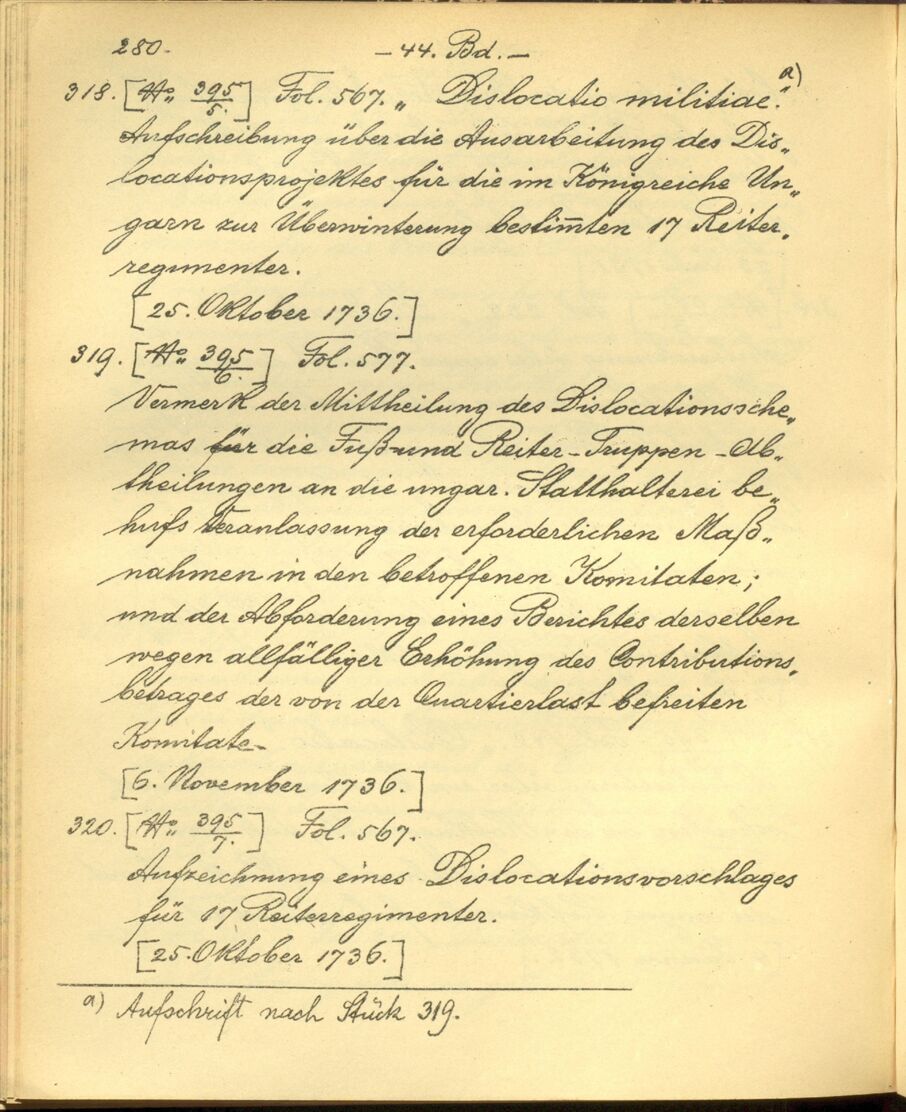 280.
— 44. Bd. —
318. [No: 395/5.] Fol. 567. „Dislocatio militiae." a)
Aufschreibung über die Ausarbeitung des Dis„
locationsprojektes für die im Königreiche Un„
garn zur Überwinterung bestim̅ten 17 Reiter„
regimenter.
[25. Oktober 1736.]
319. [No: 395/6.] Fol. 577.
Vermerk der Mittheilung des Dislocationssche„
mas für die Fuß- und Reiter-Truppen-Ab„
theilungen an die ungar. Statthalterei be„
hufs Veranlassung der erforderlichen Maß„
nahmen in den betroffenen Komitaten;
und der Abforderung eines Berichtes derselben
wegen allfälliger Erhöhung des Contributions„
betrages der von der Quartierlast befreiten
Komitate.
[6. November 1736.]
320. [No: 395/7.] Fol. 567.
Aufzeichnung eines Dislocationsvorschlages
für 17 Reiterregimenter.
[25. Oktober 1736.]
a) Aufschrift nach Stück 319.